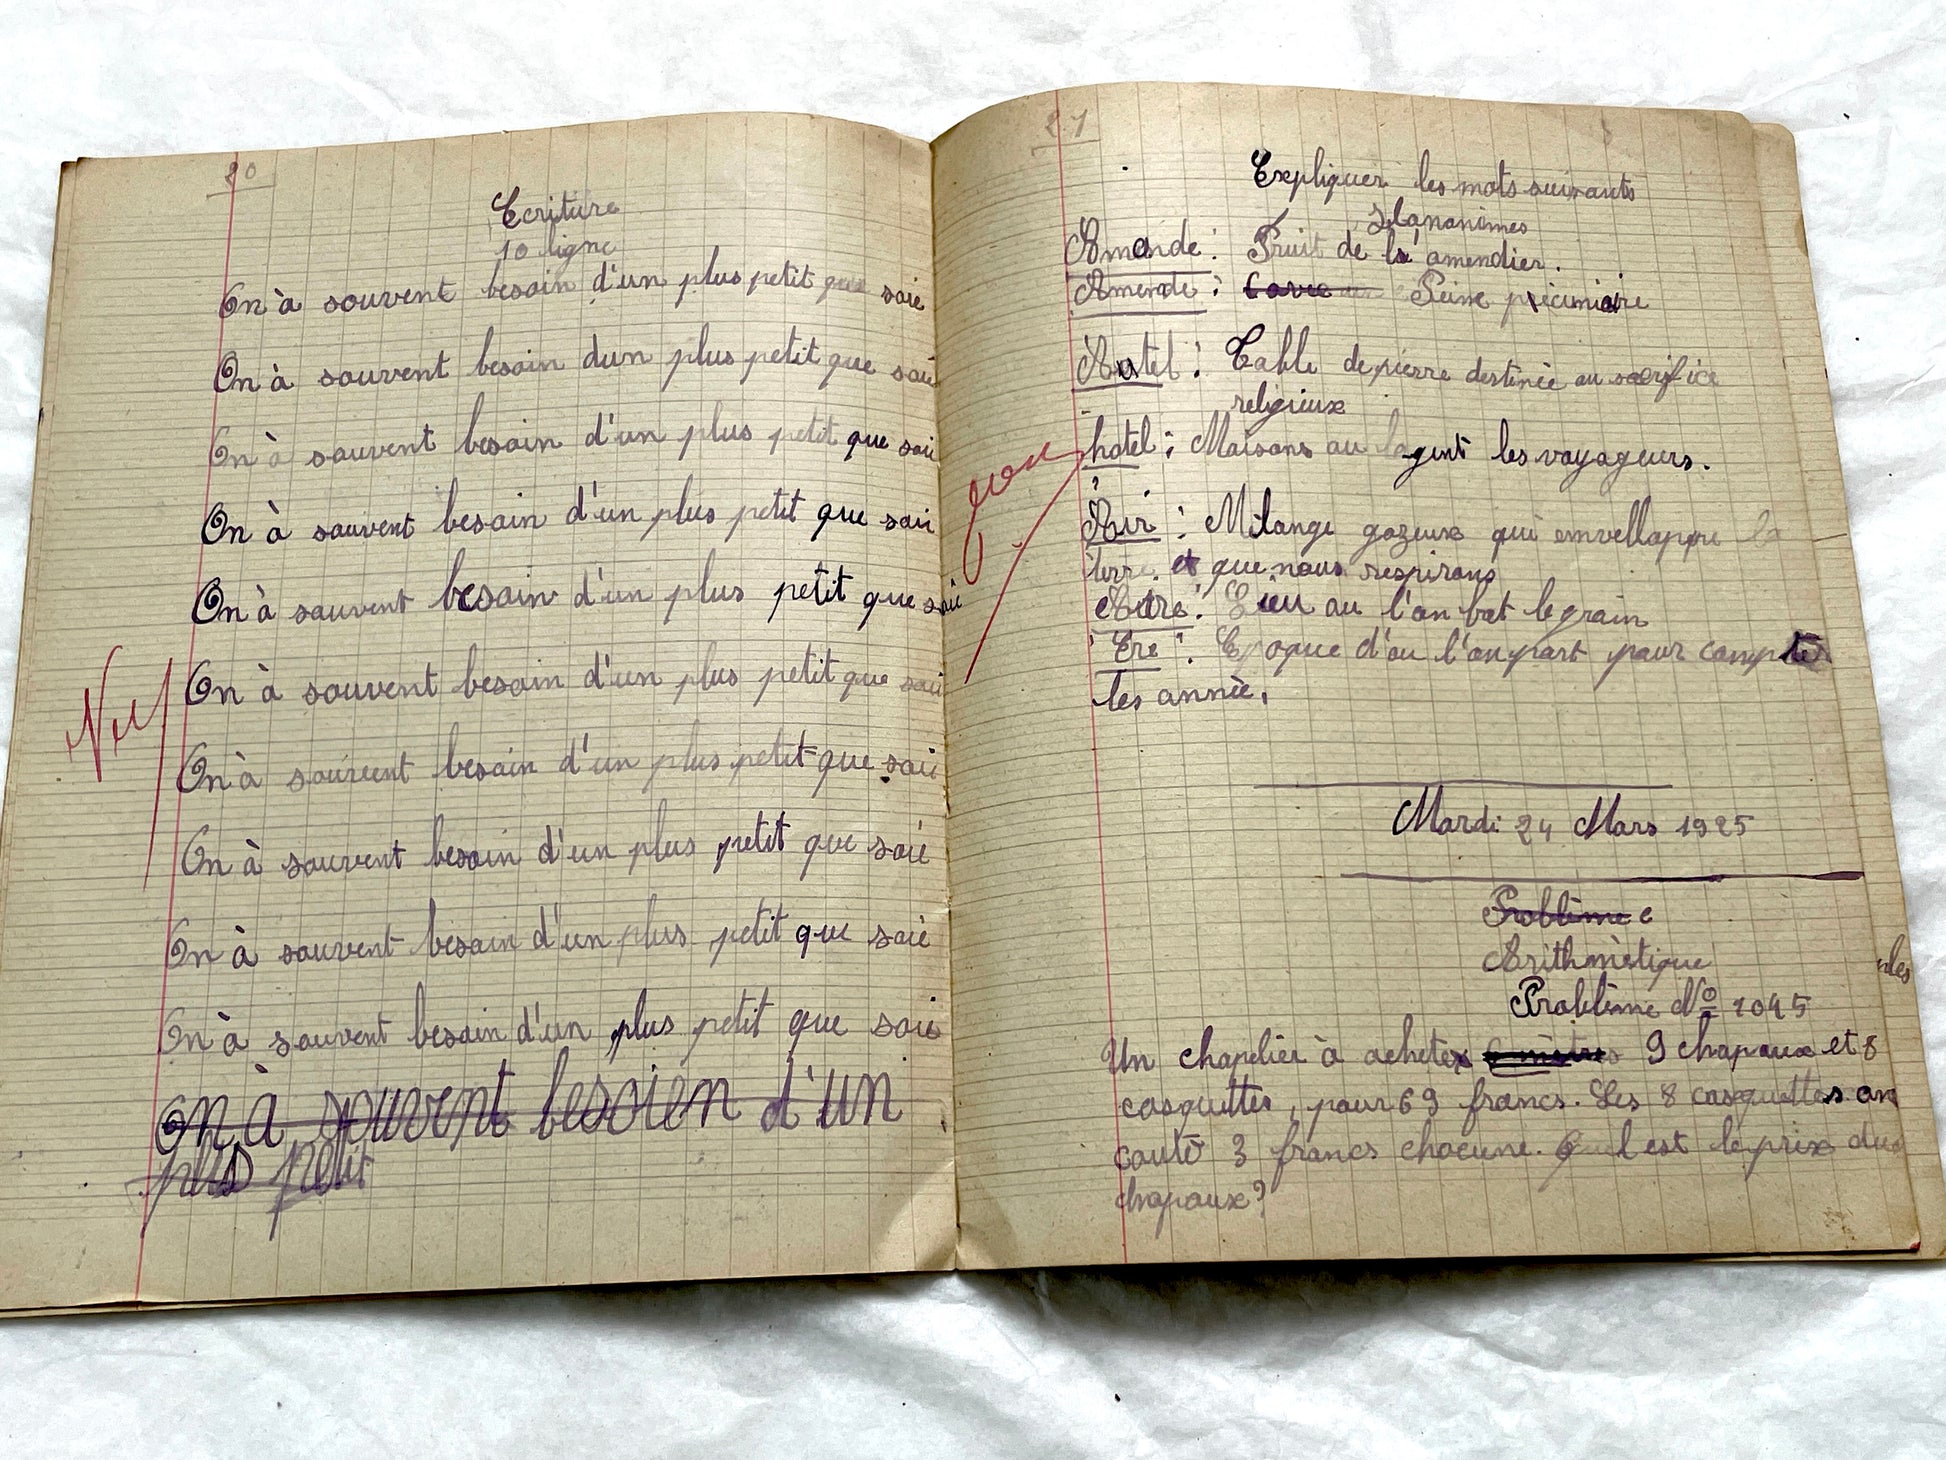 20
Ecriture
10 ligne
On à souvent besoin d'un plus petit que soie
On à souvent besoin dun plus petit que soie
On à souvent besoin d'un plus petit que soi
On à souvent besoin d'un plus petit que soi
On à souvent besoin d'un plus petit que soi
On à souvent besoin d'un plus petit que soi
On à souvent besoin d'un plus petit que soi
On à souvent besoin d'un plus petit que soie
On à souvent besoin d'un plus petit que soie
On à souvent besoin d'un plus petit que soie
On à souvent besoien d'un
plus petit
Nul
21
Expliquer les mots suivants
Amande : Fruit de la amendier.
Amende : Peine pécuniaire
Autel : Table de pierre destinée au sacrifice
religieux
hotel : Maisons ou logent les voyageurs.
Air : Mélange gazeux qui emvelloppe la
terre. et que nous respirons
Aire : Lieu ou l'on bat le grain
Ere : Epoque d'ou l'on part pour compter
les année.
Mardi 24 Mars 1925
Problème e
Arithmètique
Problème No 1045
Un chapelier à acheter 6 mètres 9 chapaux et 8
casquettes, pour 69 francs. Les 8 casquettes on
coutè 3 francs chacune. Quel est le prix des
chapaux?